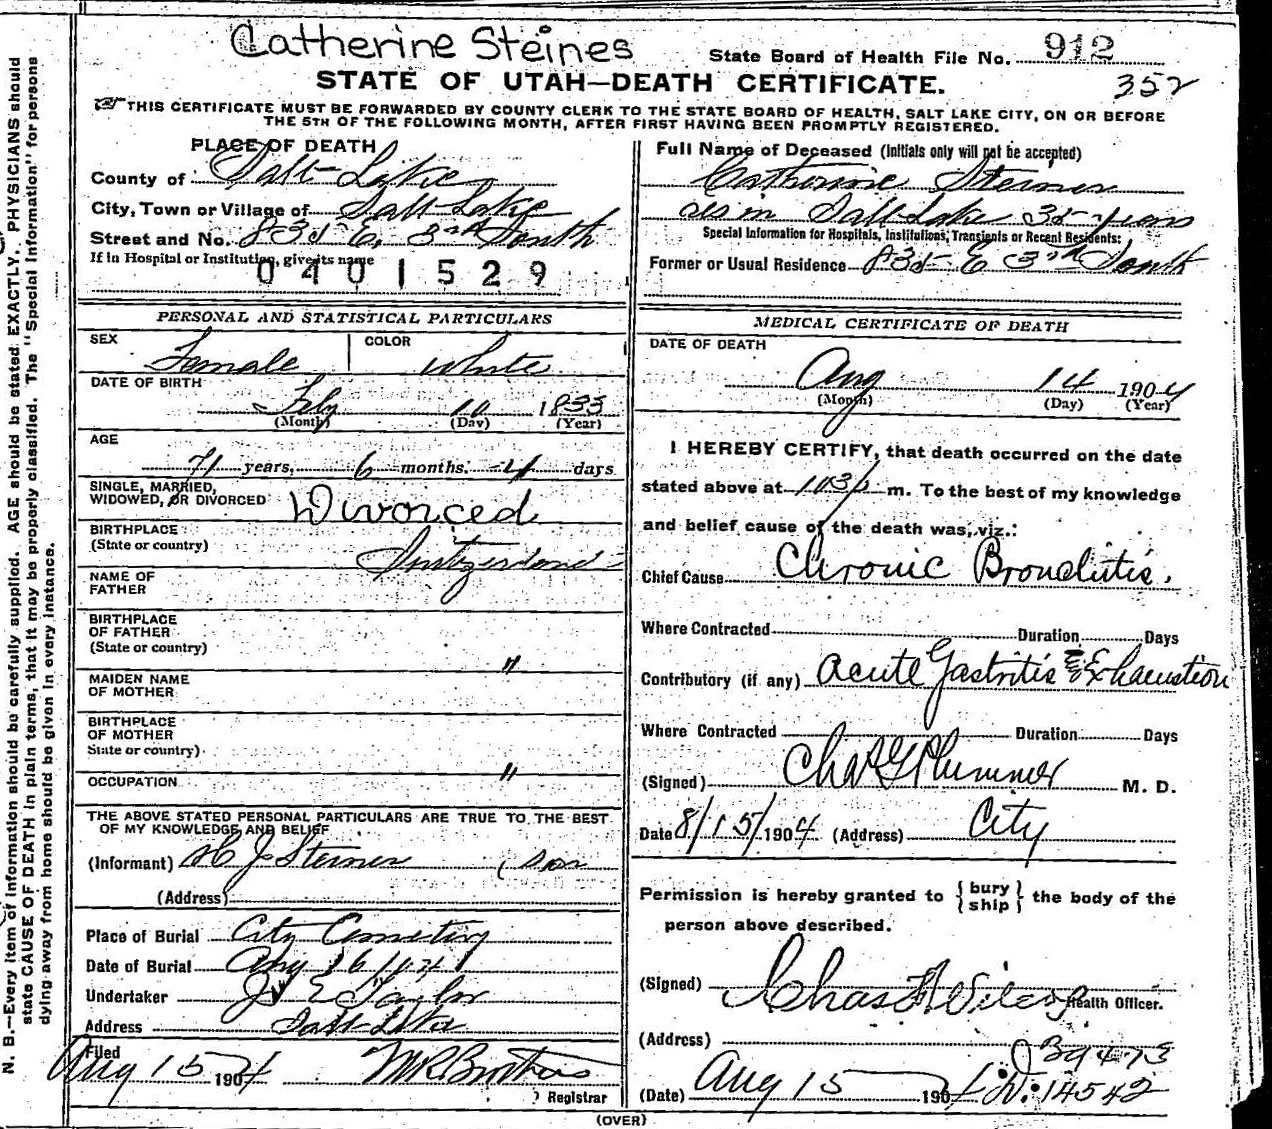 Catherine Steines
State Board of Health File No. 912
STATE OF UTAH—DEATH CERTIFICATE.
352
THIS CERTIFICATE MUST BE FORWARDED BY COUNTY CLERK TO THE STATE BOARD OF HEALTH, SALT LAKE CITY, ON OR BEFORE
THE 5TH OF THE FOLLOWING MONTH, AFTER FIRST HAVING BEEN PROMPTLY REGISTERED.
PLACE OF DEATH
County of Salt Lake
City, Town or Village of Salt Lake
Street and No. 835 E. 3rd South
If in Hospital or Institution, give its name
0401529
Full Name of Deceased (Initials only will not be accepted)
Catherine Steiner
res in Salt Lake 35 years
Special Information for Hospitals, Institutions, Transients or Recent Residents:
Former or Usual Residence 835 E 3rd South
PERSONAL AND STATISTICAL PARTICULARS
SEX Female
COLOR White
DATE OF BIRTH
Feby 10 1833
(Month) (Day) (Year)
AGE
71 years, 6 months, 4 days
SINGLE, MARRIED,
WIDOWED, OR DIVORCED Divorced
BIRTHPLACE
(State or country) Switzerland
NAME OF
FATHER
BIRTHPLACE
OF FATHER
(State or country) "
MAIDEN NAME
OF MOTHER
BIRTHPLACE
OF MOTHER
State or country) "
OCCUPATION
THE ABOVE STATED PERSONAL PARTICULARS ARE TRUE TO THE BEST
OF MY KNOWLEDGE AND BELIEF
(Informant) H J Steiner (son
(Address)
Place of Burial City Cemetery
Date of Burial Aug 16 1904
Undertaker J E Taylor
Address Salt Lake
Filed
Aug 15 1904
Registrar
MEDICAL CERTIFICATE OF DEATH
DATE OF DEATH
Aug 14 1904
(Month) (Day) (Year)
I HEREBY CERTIFY, that death occurred on the date
stated above at m. To the best of my knowledge
and belief cause of the death was, viz.:
Chief Cause Chronic Bronchitis.
Where Contracted Duration Days
Contributory (if any) Acute Gastritis & Exhaustion
Where Contracted Duration Days
(Signed) Chas G Plummer M. D.
Date 8/15/1904 (Address) City
Permission is hereby granted to {bury ship} the body of the
person above described.
(Signed) Chas Health Officer.
(Address)
(Date) Aug 15 1904
14542
(OVER)
N. B.—Every item of information should be carefully supplied. AGE should be stated EXACTLY. PHYSICIANS should
state CAUSE OF DEATH in plain terms, that it may be properly classified. The "Special Information" for persons
dying away from home should be given in every instance.